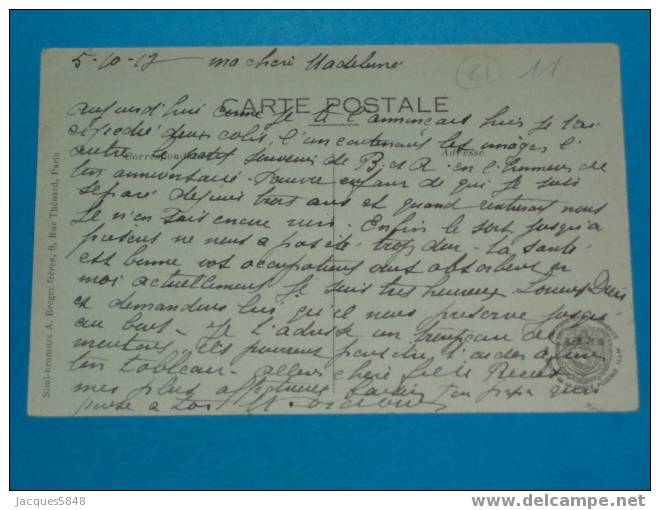 5-10-17 ma chère Madeleine
21 11
CARTE POSTALE
Correspondance
Adresse
aujourd'hui comme je te l'annonçais hier je t'ai
expédié deux colis, l'un contenant les images l'
autre le petit souvenir de B. et R. en l'honneur de
ton anniversaire. Pauvre enfant de qui je suis
séparé depuis trois ans et quand rentrerai nous
Je n'en sais encore rien. Enfin le sort jusqu'à
présent ne nous a pas été trop dur - la santé
est bonne vos occupations vous absorbent et
moi actuellement je suis très heureux. Louons Dieu
et demandons lui qu'il nous préserve jusqu'
au bout - Je t'adresse un troupeau de
moutons ils pourront peut être t'aider a faire
ton tableau - allons chère fille Reçois
mes plus affectueux baisers ton papa qui
pense à toi
Simi-bromure A. Breger frères, 9, Rue Thénard, Paris
Jacques5848
www.delcampe.net